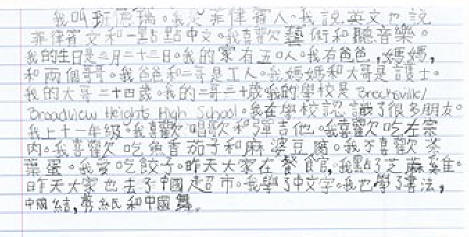 我叫班德瑞。我是菲律賓人。我說英文也說
菲律賓文和一點點中文。我喜歡藝術和聽音樂。
我的生日是三月二十三日。我的家有五口人。我有爸爸,媽媽,
和兩個哥哥。我爸爸和二哥是工人。我媽媽和大哥是護士。
我的大哥二十四歲。我的二哥二十歲我的學校是 Brecksville/
Broadview Height High School。我在學校認識了很多朋友。
我上十一年級。我喜歡唱歌和彈吉他。我喜歡吃左宗
肉。我喜歡吃魚香茄子和麻婆豆腐。我不喜歡茶
葉蛋。我愛吃餃子。昨天大家在餐館,我點了芝麻雞。
昨天大家也去了中國超市。我學了中文字。我也學了書法,
中國結,剪紙和中國舞。